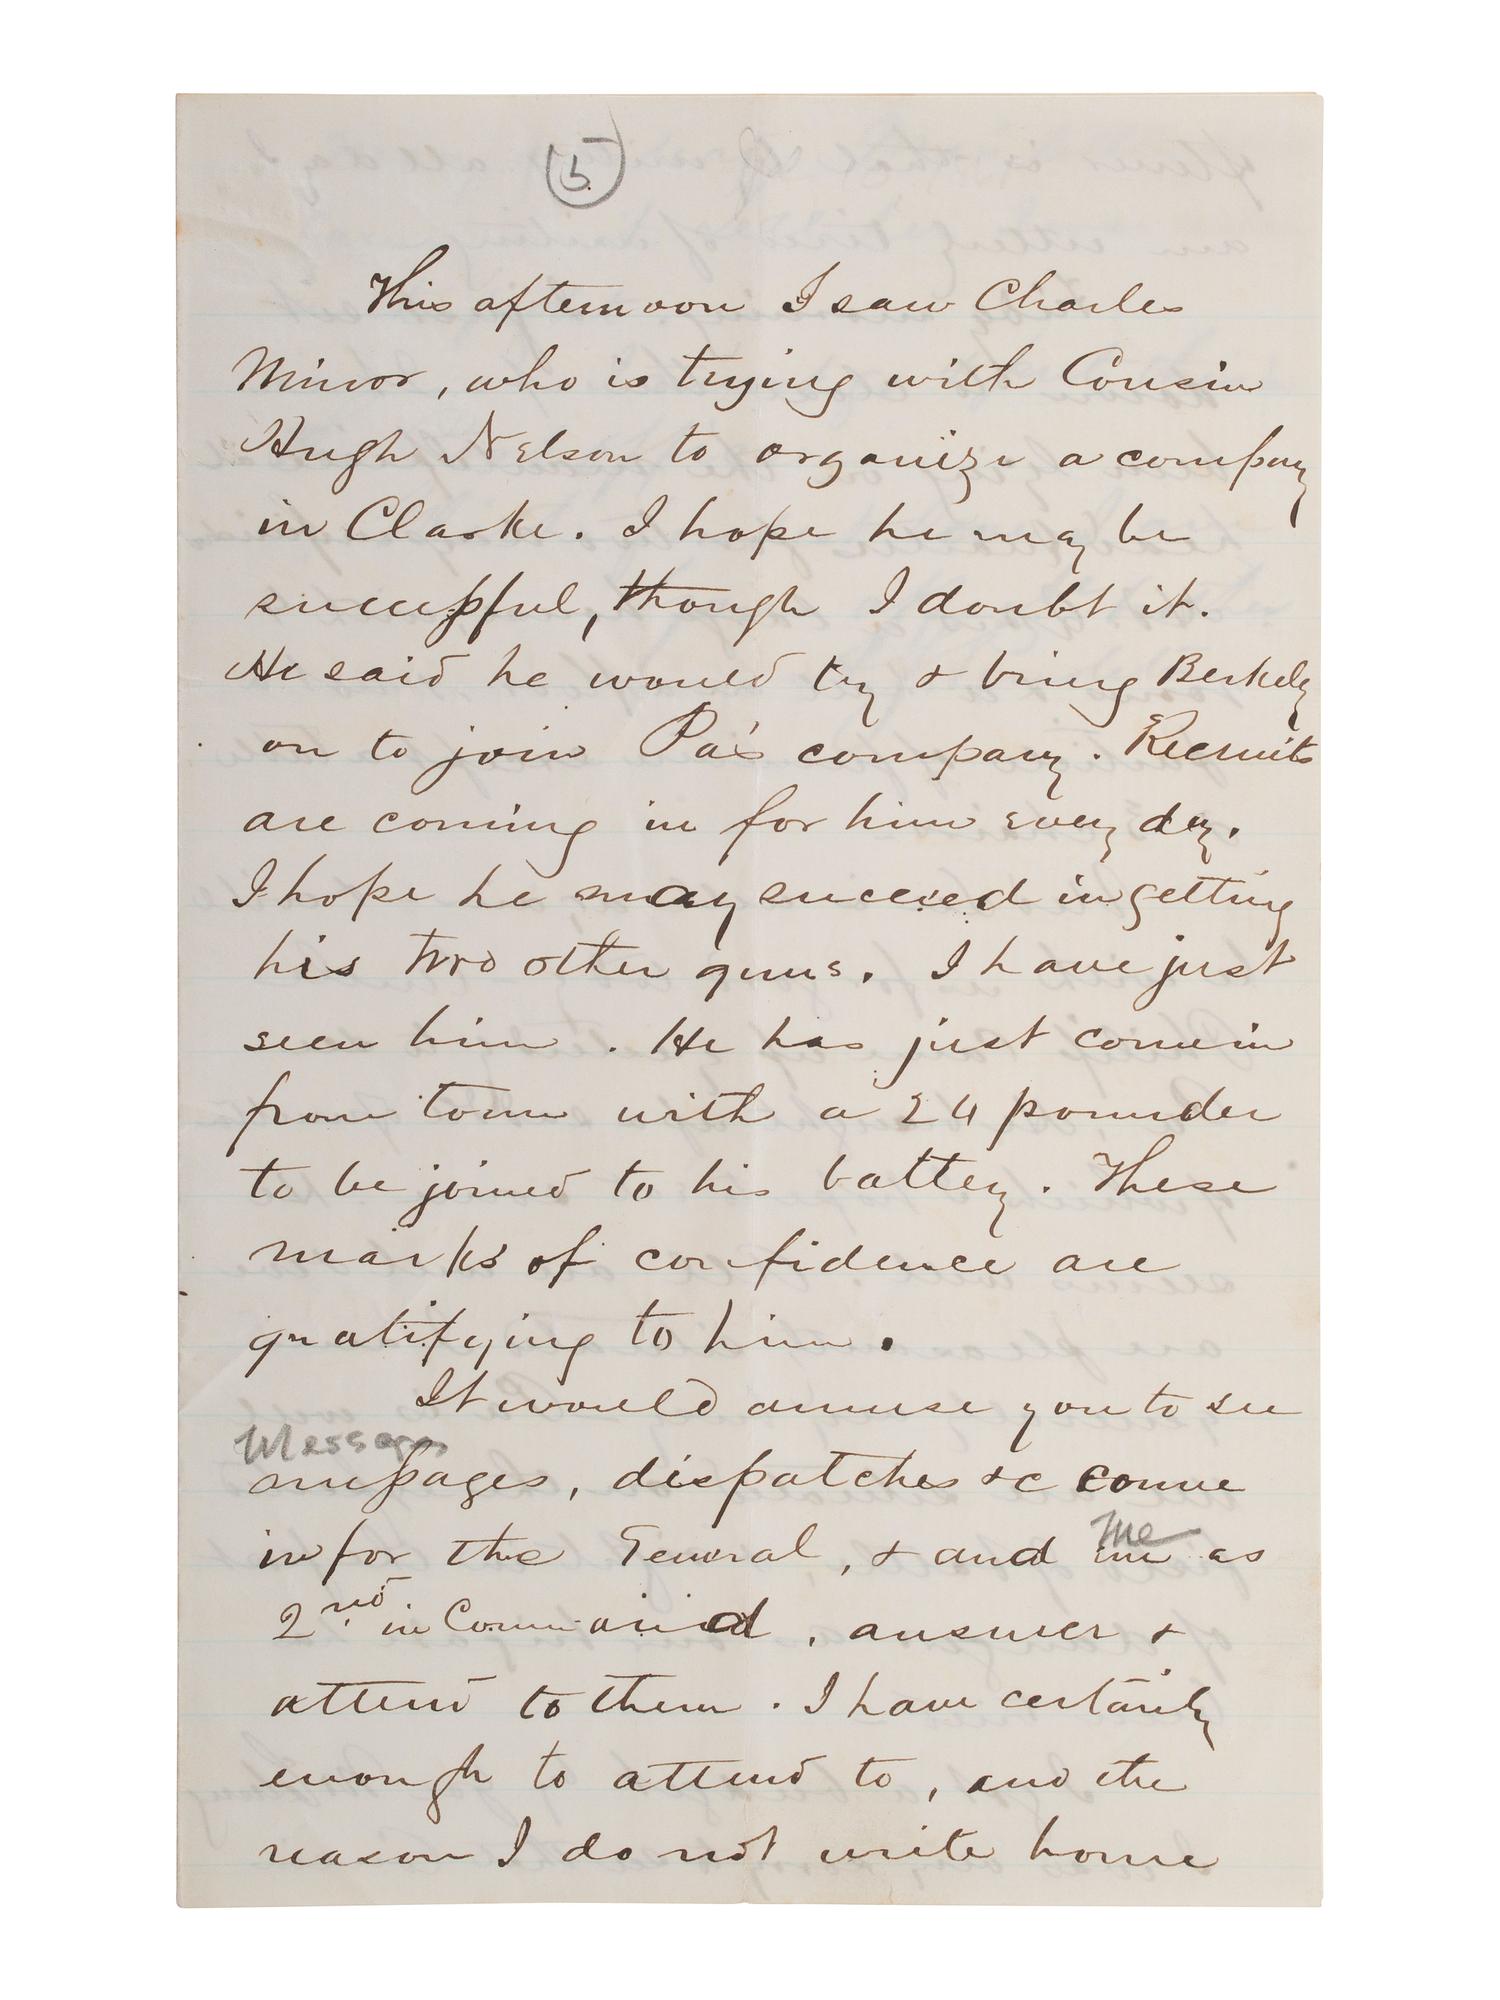 5
This afternoon I saw Charles
Minor, who is trying with Cousin
Hugh Nelson to organize a company
in Clarke. I hope he may be
successful, though I doubt it.
He said he would try & bring Berkeley
on to join Pa's company. Recruits
are coming in for him every day.
I hope he may succeed in getting
his two other guns. I have just
seen him. He has just come in
from town with a 24 pounder
to be joined to his battery. These
marks of confidence are
gratifying to him.
It would amuse you to see
Messages
messages, dispatches &c come
in for the General, & and me as
me
2nd in Command, answer &
attend to them. I have certainly
enough to attend to, and the
reason I do not write home